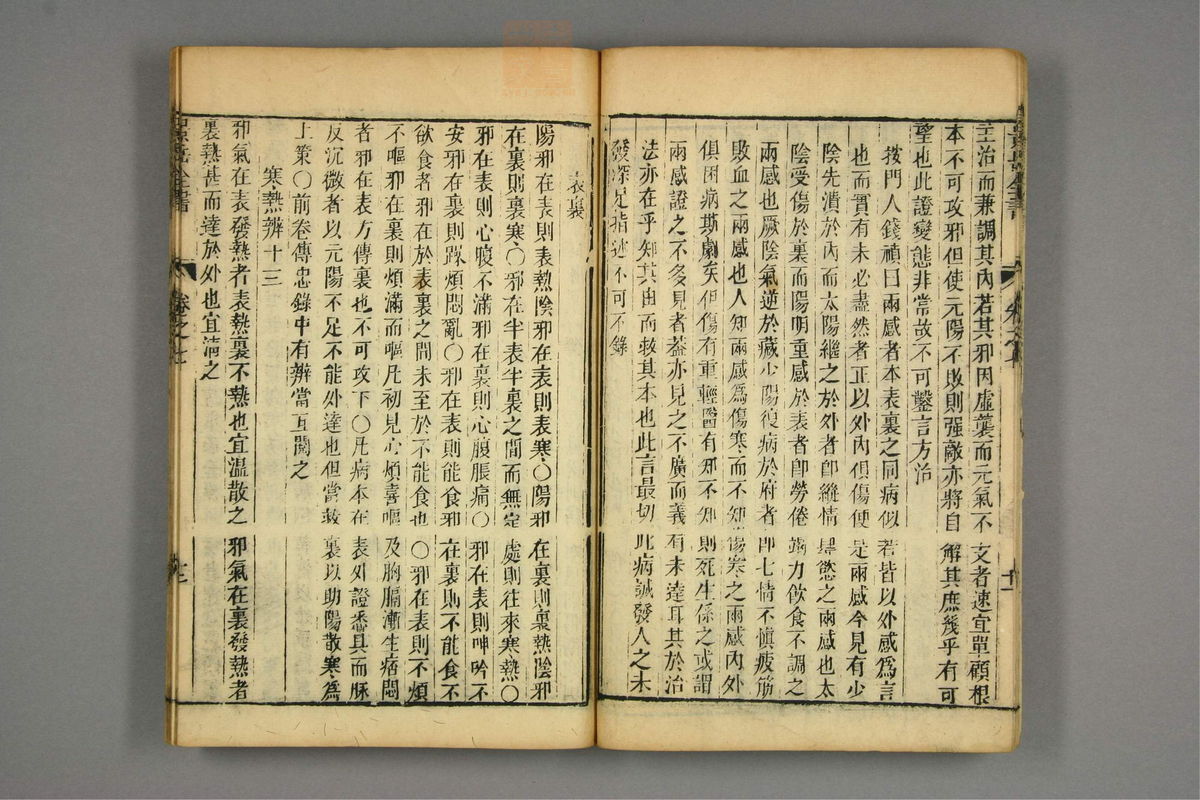 主治而兼調其內若其邪因虛襲而元氣不支者速宜單顧根
本不可攻邪但使元陽不敗則强敵亦將自解其庶幾乎有可
望也此證變態非常故不可鑿言方治
按門人錢禎曰兩感者本表裏之同病似若皆以外感爲言
也而實有未必盡然者正以外內俱傷便是兩感今見有少
陰先潰於內而太陽繼之於外者卽縱情肆慾之兩感也太
陰受傷於裏而陽明重感於表者卽勞倦竭力飲食不調之
兩感也厥陰氣逆於藏少陽復病於府者卽七情不愼疲筋
敗血之兩感也人知兩感爲傷寒而不知傷寒之兩感內外
俱困病斯劇矣但傷有重輕醫有知不知則死生係之或謂
兩感證之不多見者蓋亦見之不廣而義有未達耳其於治
法亦在乎知其由而救其本也此言最切此病誠發人之未
發深足指迷不可不錄
十一
表裏
陽邪在表則表熱陰邪在表則表寒○陽邪在裏則裏熱陰邪
在裏則裏寒○邪在半表半裏之間而無定處則往來寒熱○
邪在表則心腹不滿邪在裏則心腹脹痛○邪在表則呻吟不
安邪在裏則躁煩悶亂○邪在表則能食邪在裏則不能食不
欲食者邪在於表裏之間未至於不能食也○邪在表則不煩
不嘔邪在裏則煩滿而嘔凡初見心煩喜嘔及胸膈漸生痞悶
者邪在表方傳裏也不可攻下○凡病本在表外證悉具而脉
反沉微者以元陽不足不能外達也但當救裏以助陽散寒爲
上策○前卷傳忠錄中有辨當互閱之
寒熱辨十三
邪氣在表發熱者表熱裏不熱也宜溫散之邪氣在裏發熱者
裏熱甚而達於外也宜淸之
卷之七
十二